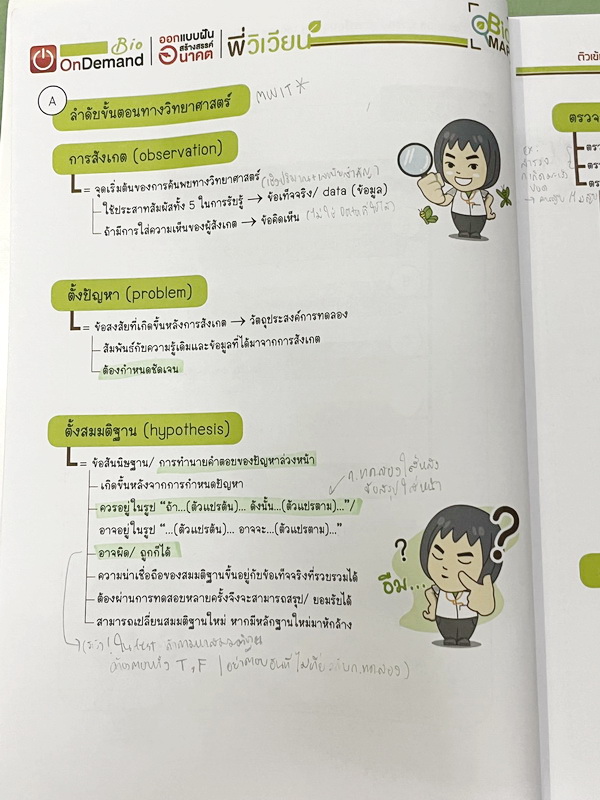 Bio
OnDemand
ออกแบบฝัน
สร้างสรรค์
อนาคต
พี่วิเวียน
Bio
MAP
A
ลำดับขั้นตอนทางวิทยาศาสตร์
MWIT*
การสังเกต (observation)
= จุดเริ่มต้นของการค้นพบทางวิทยาศาสตร์
ใช้ประสาทสัมผัสทั้ง 5 ในการรับรู้ → ข้อเท็จจริง/ data (ข้อมูล)
ถ้ามีการใส่ความเห็นของผู้สังเกต → ข้อคิดเห็น
ตั้งปัญหา (problem)
= ข้อสงสัยที่เกิดขึ้นหลังการสังเกต → วัตถุประสงค์การทดลอง
สัมพันธ์กับความรู้เดิมและข้อมูลที่ได้มาจากการสังเกต
ต้องกำหนดชัดเจน
ตั้งสมมติฐาน (hypothesis)
= ข้อสันนิษฐาน/ การทำนายคำตอบของปัญหาล่วงหน้า
เกิดขึ้นหลังจากการกำหนดปัญหา
ควรอยู่ในรูป “ถ้า...(ตัวแปรต้น)... ดังนั้น...(ตัวแปรตาม)...”/
อาจอยู่ในรูป “...(ตัวแปรต้น)... อาจจะ...(ตัวแปรตาม)...”
อาจผิด/ ถูกก็ได้
ความน่าเชื่อถือของสมมติฐานขึ้นอยู่กับข้อเท็จจริงที่รวบรวมได้
ต้องผ่านการทดสอบหลายครั้งจึงจะสามารถสรุป/ ยอมรับได้
สามารถเปลี่ยนสมมติฐานใหม่ หากมีหลักฐานใหม่มาหักล้าง
อืม...
? ?
T,F
ติวเข้ม
ตรวจ